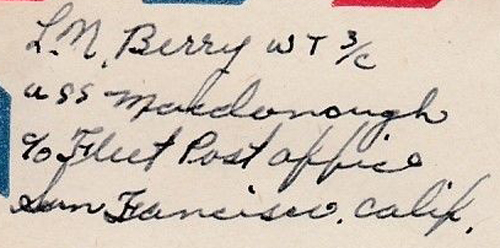 L.M. Berry WT 3/c
USS Macdonough
c/o Fleet Post office
San Francisco. Calif.